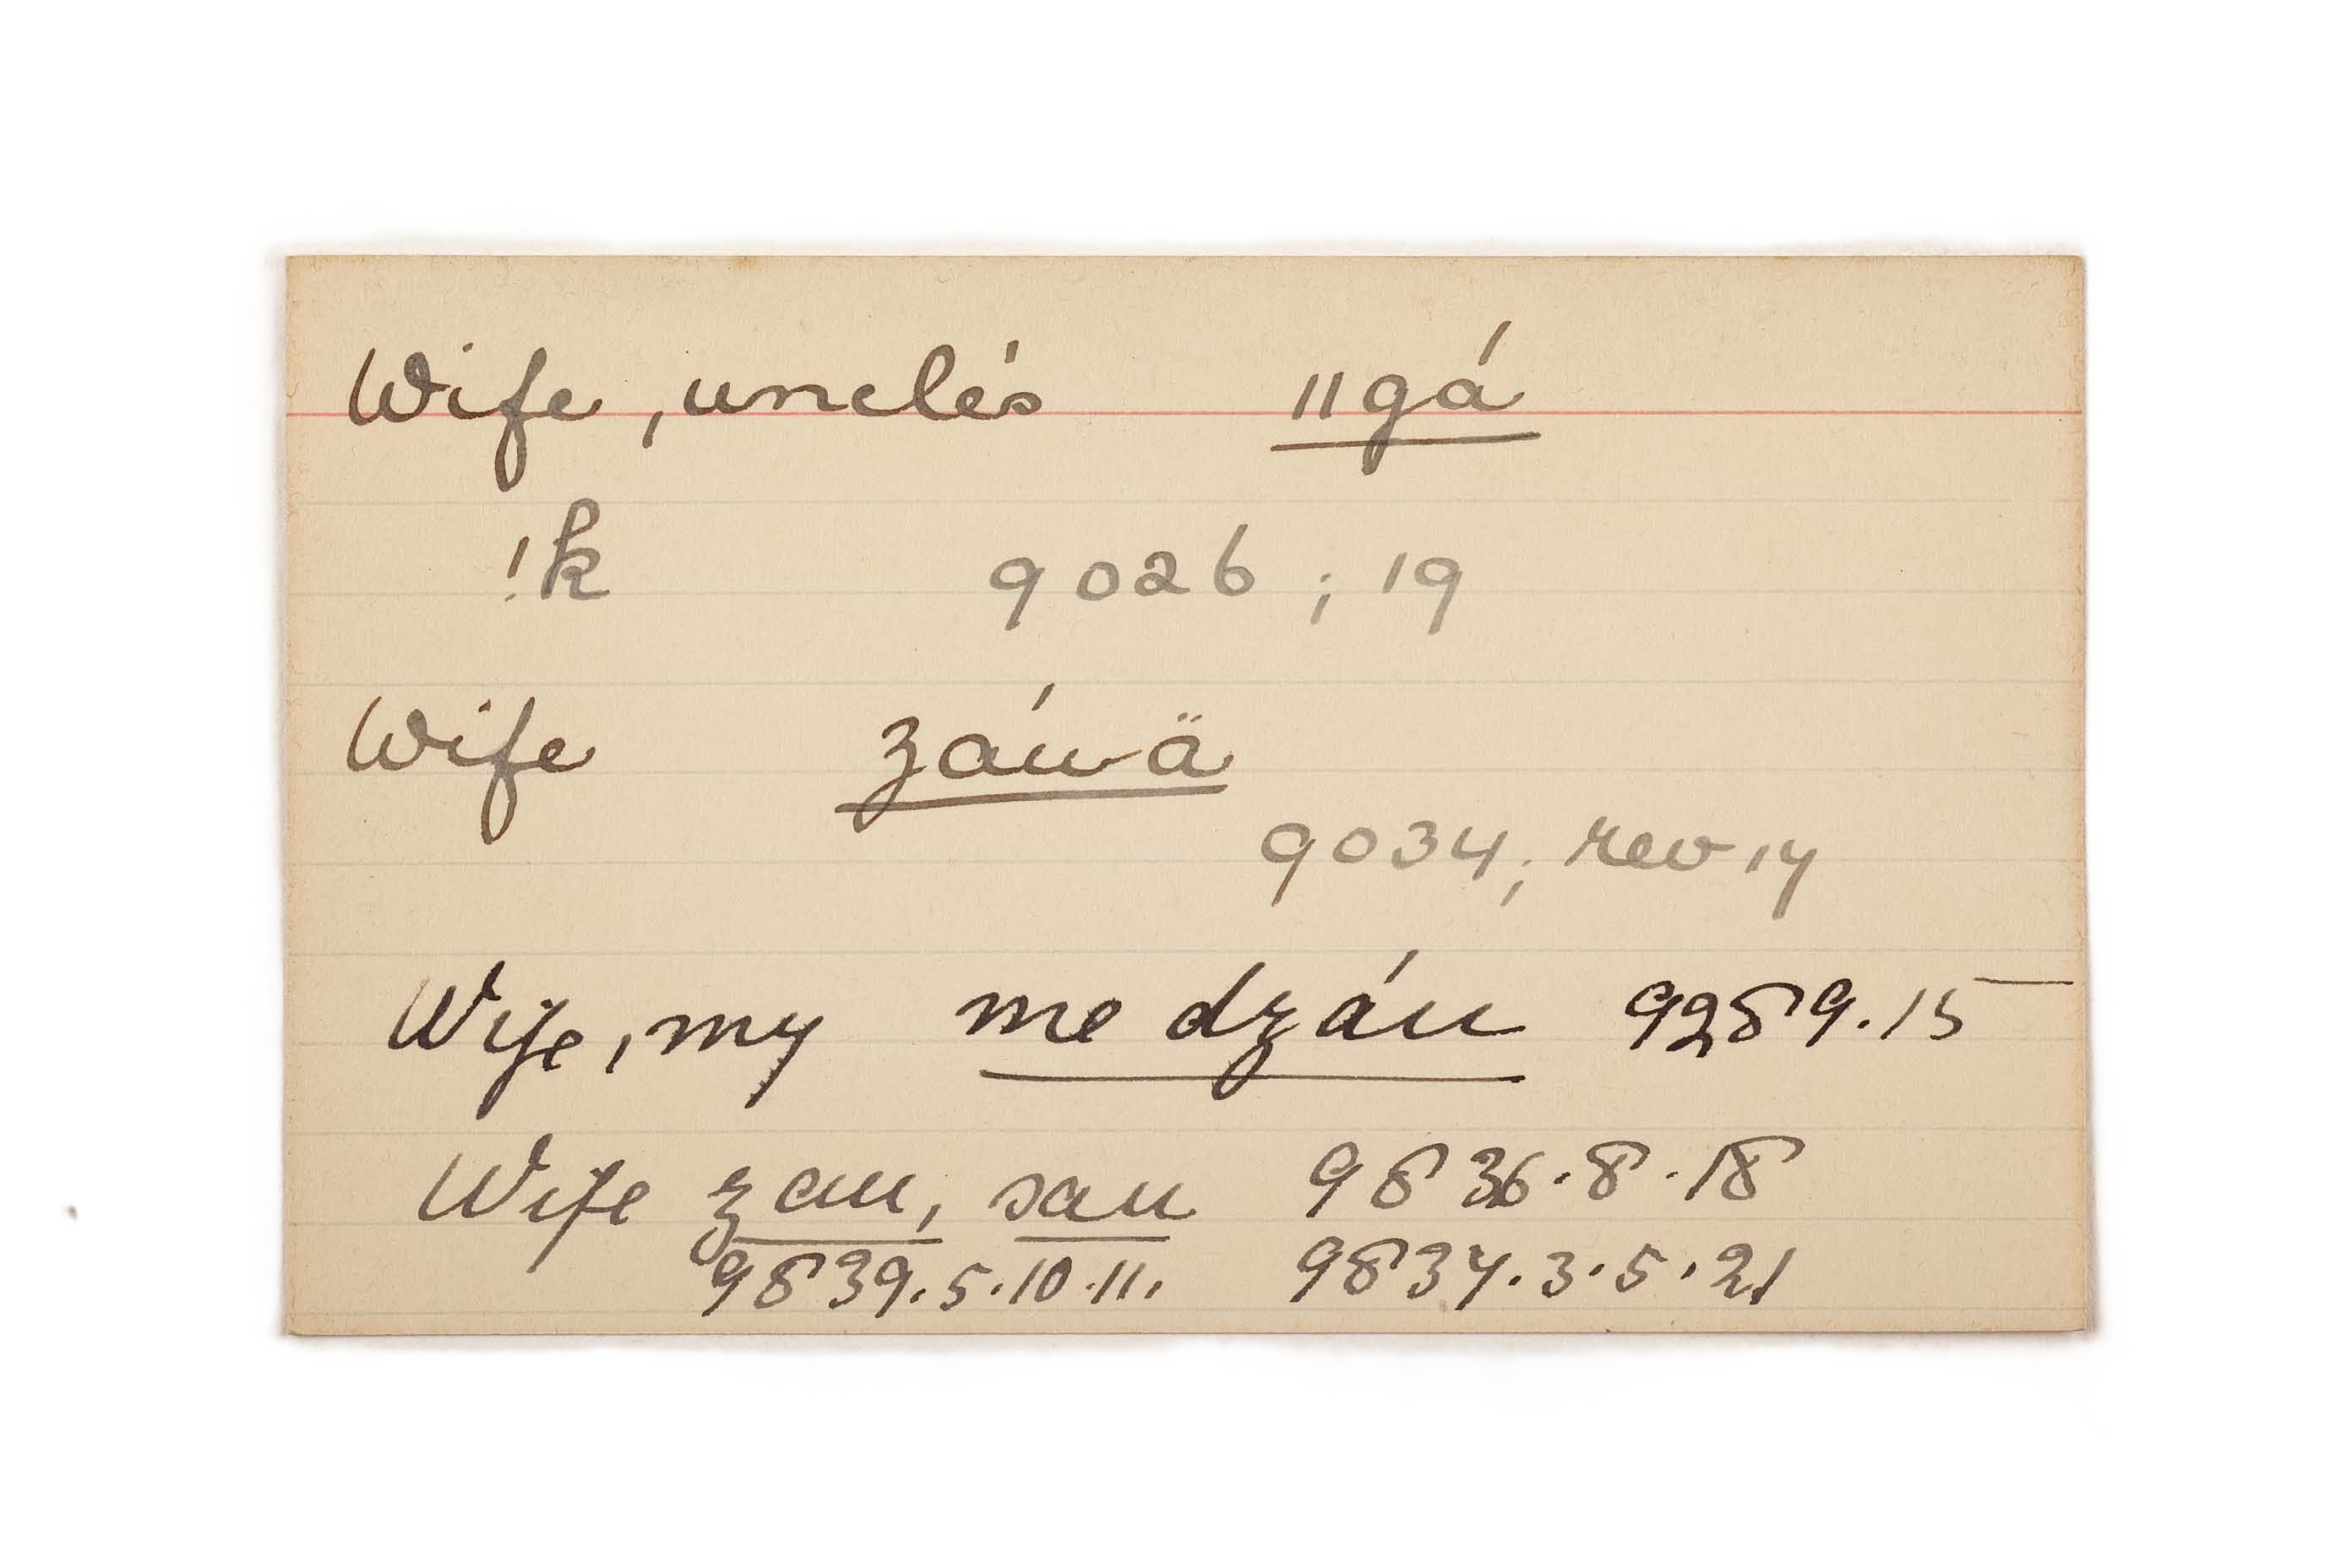 Wife, uncle's ǁgá
!k 9026; 19
Wife záwä
9034; rev 14
Wife, my me dzáu 9289.15
Wife zau, sau 9836.8.18
9839.5.10.11. 9834.3.5.21